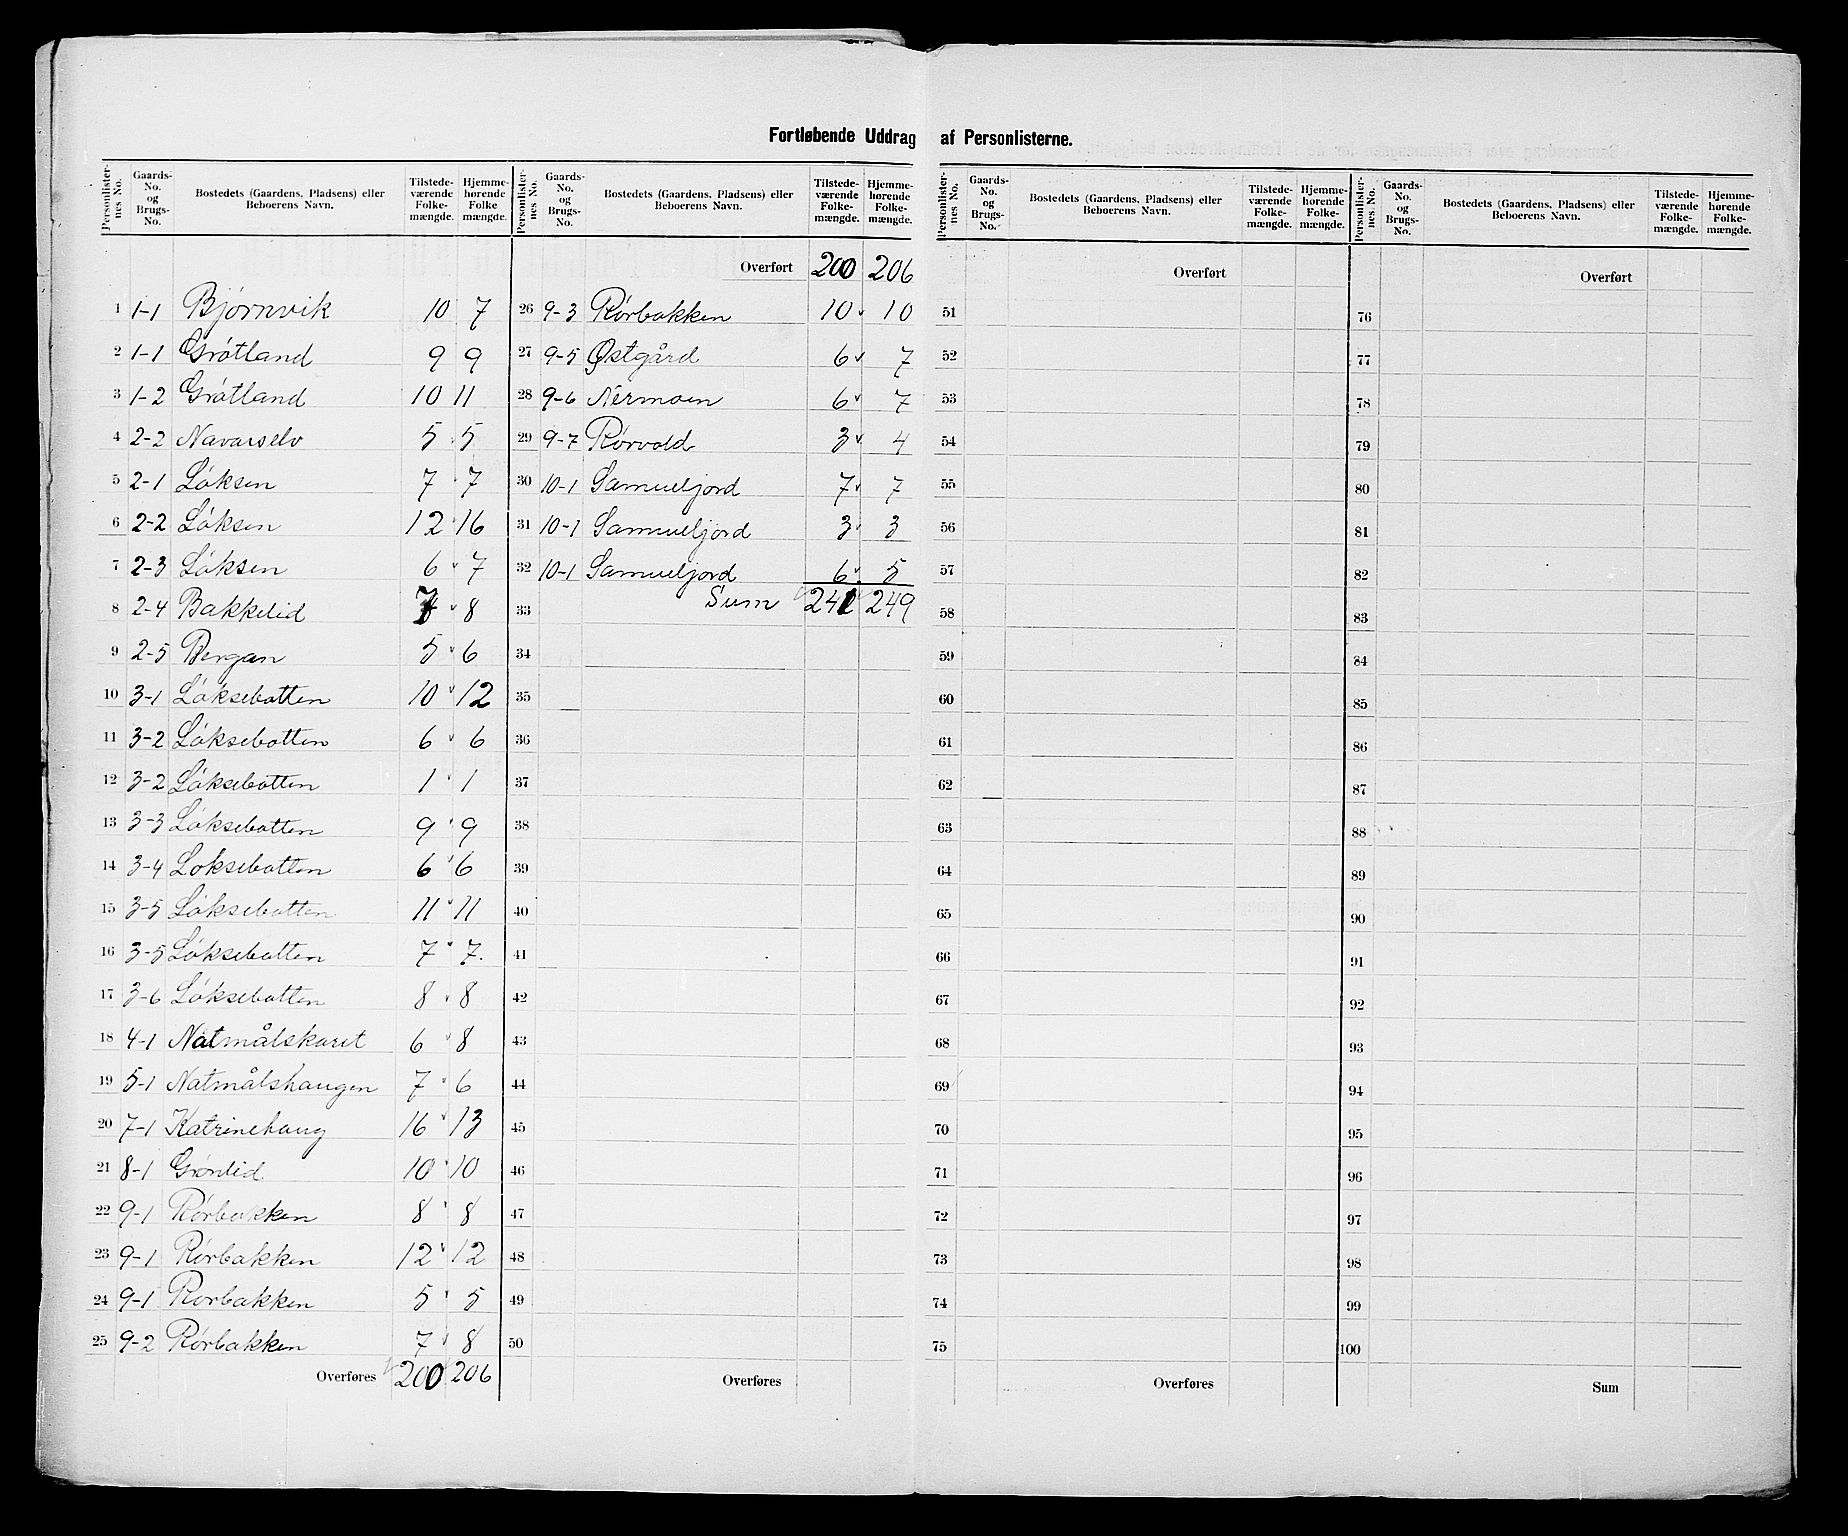 Fortløbende Uddrag af Personlisterne.
Personlister-nes No. | Gaards-No. og Brugs-No. | Bostedets (Gaardens, Pladsens) eller Beboerens Navn. | Tilstede-værende Folke-mængde. | Hjemme-hørende Folke mængde.
1 1-1 Bjørnvik 10 7
2 1-1 Grøtland 9 9
3 1-2 Grøtland 10 11
4 2-2 Navarselv 5 5
5 2-1 Løksen 7 7
6 2-2 Løksen 12 16
7 2-3 Løksen 6 7
8 2-4 Bakkelid 7 8
9 2-5 Bergan 5 6
10 3-1 Løksebotten 10 12
11 3-2 Løksebotten 6 6
12 3-2 Løksebotten 1 1
13 3-3 Løksebotten 9 9
14 3-4 Loksebotten 6 6
15 3-5 Løksebotten 11 11
16 3-5 Løksebotten 7 7.
17 3-6 Løksebotten 8 8
18 4-1 Natmålskaret 6 8
19 5-1 Natmålshaugen 7 6
20 7-1 Katrinehaug 16 13
21 8-1 Grønlid 10 10
22 9-1 Rørbakken 8 8
23 9-1 Rørbakken 12 12
24 9-1 Rørbakken 5 5
25 9-2 Rørbakken 7 8
Overføres 200 206
Personlister-nes No. | Gaards-No. og Brugs-No. | Bostedets (Gaardens, Pladsens) eller Beboerens Navn. | Tilstede-værende Folke-mængde. | Hjemme-hørende Folke-mængde.
Overført 200 206
26 9-3 Rørbakken 10 10
27 9-5 Østgård 6 7
28 9-6 Nermoen 6 7
29 9-7 Rørvold 3 4
30 10-1 Samueljord 7 7
31 10-1 Samueljord 3 3
32 10-1 Samueljord 6 5
33 Sum 241 249
34
35
36
37
38
39
40
41
42
43
44
45
46
47
48
49
50
Overføres
Personlister-nes No. | Gaards-No. og Brugs-No. | Bostedets (Gaardens, Pladsens) eller Beboerens Navn. | Tilstede-værende Folke-mængde. | Hjemme-hørende Folke-mængde.
Overført
51
52
53
54
55
56
57
58
59
60
61
62
63
64
65
66
67
68
69
70
71
72
73
74
75
Overføres
Personlister-nes No. | Gaards-No. og Brugs-No. | Bostedets (Gaardens, Pladsens) eller Beboerens Navn. | Tilstede-værende Folke-mængde. | Hjemme-hørende Folke-mængde.
Overført
76
77
78
79
80
81
82
83
84
85
86
87
88
89
90
91
92
93
94
95
96
97
98
99
100
Sum